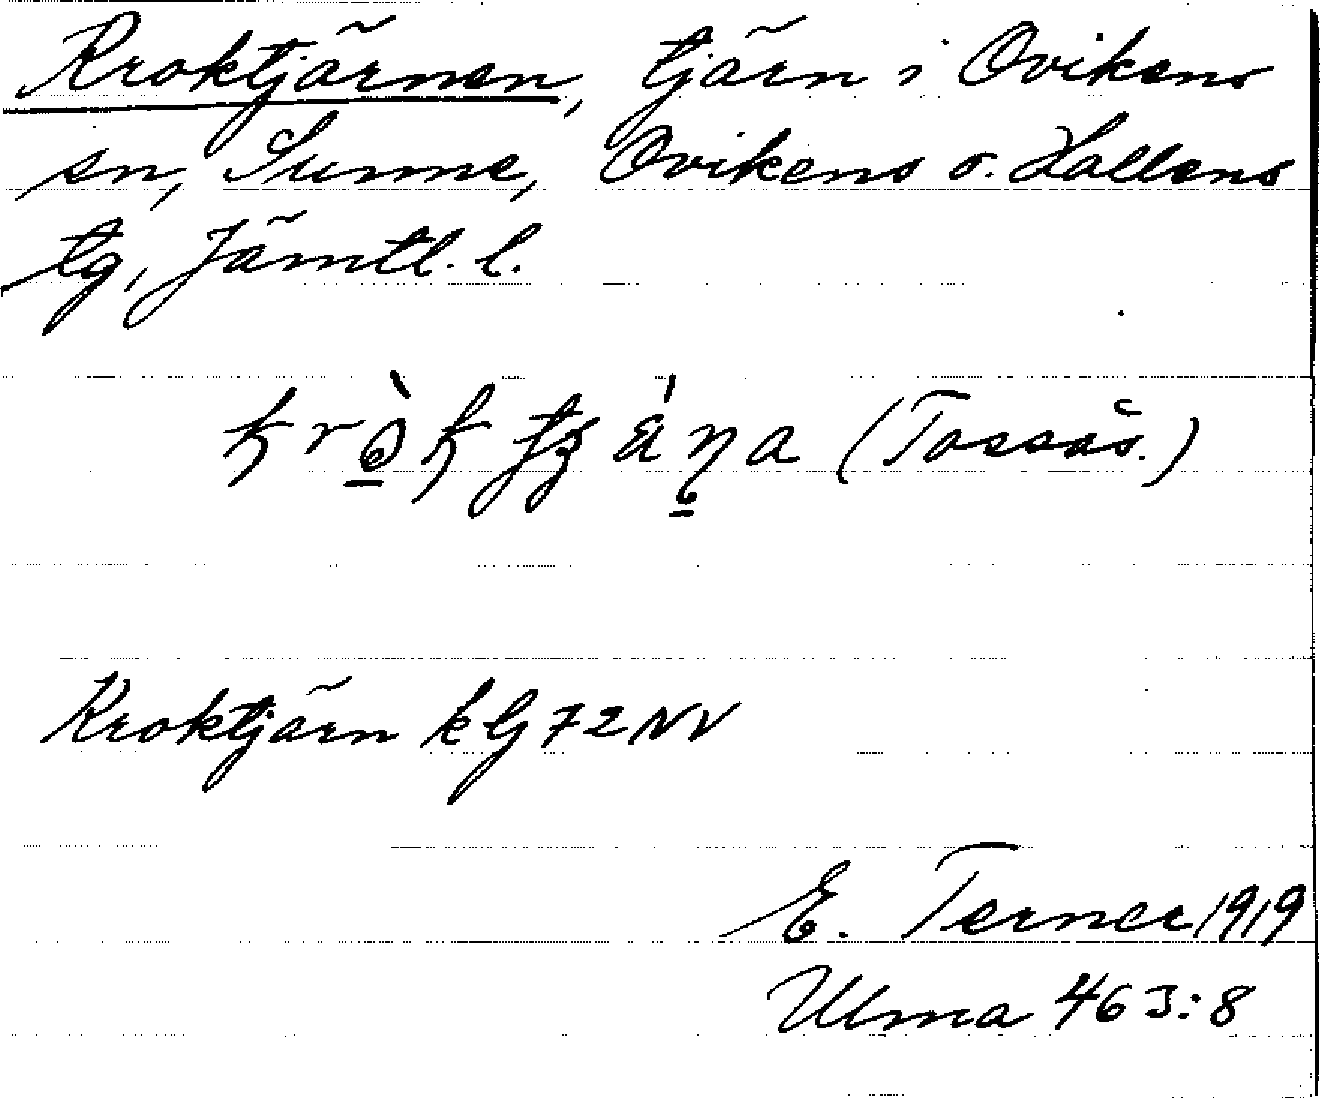 Kroktjärnen, tjärn i Ovikens
sn, Sunne, Ovikens o. Hallens
tg, Jämtl. l.
(Tossås.)
Kroktjärn kG 72 NV
E. Terner 1919
Ulma 463:8